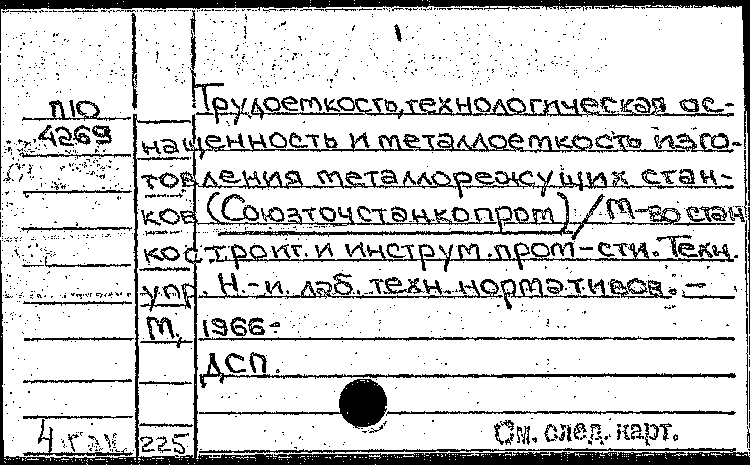 П10
4269
Трудоемкость, технологическая ос-
нащенность и металлоемкость изго-
товления металлорежущих стан-
ков (Союзточстанкопром) / М-во стан
костроит. и инструм. пром-сти. Техн.
упр. Н.-и. лаб. техн. нормативов. -
М., 1966-
ДСП.
4 225
См. след. карт.